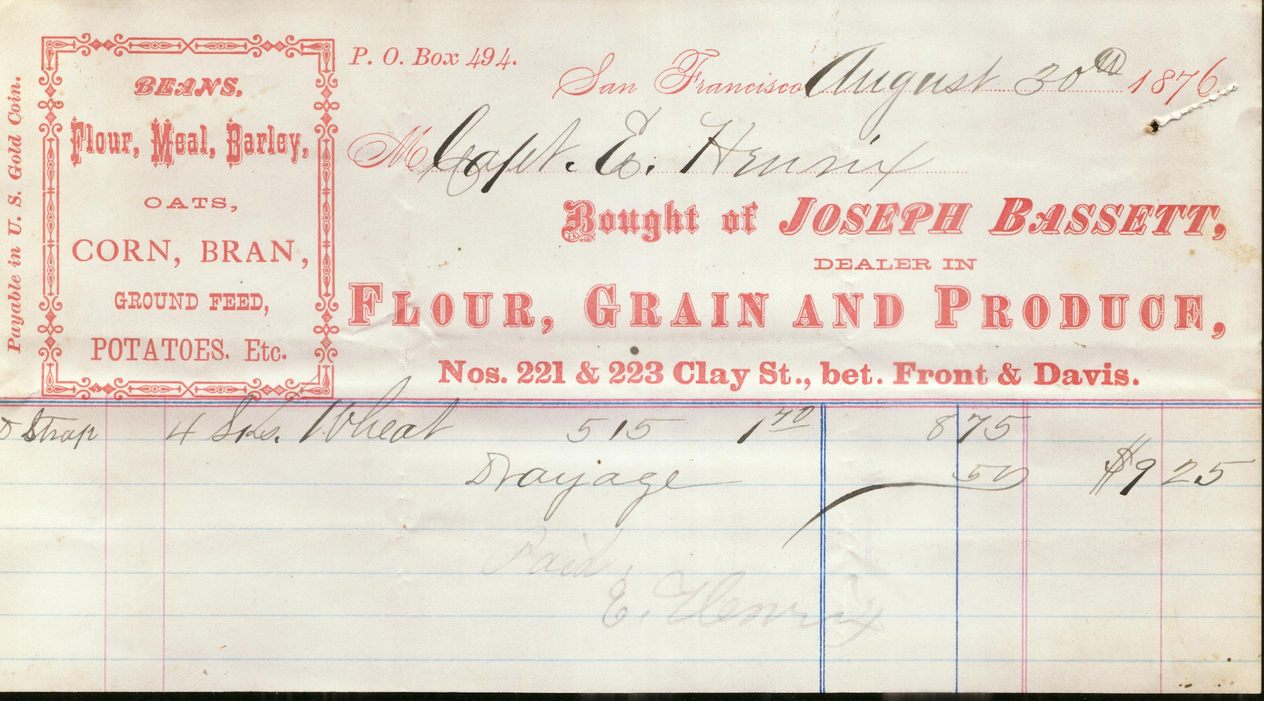 Payable in U. S. Gold Coin.
BEANS.
Flour, Meal, Barley,
OATS,
CORN, BRAN,
GROUND FEED,
POTATOES. Etc.
P. O. Box 494.
San Francisco August 30th 1876
M Capt. E. Henrix
Bought of JOSEPH BASSETT,
DEALER IN
FLOUR, GRAIN AND PRODUCE,
Nos. 221 & 223 Clay St., bet. Front & Davis.
Strap 4 Sks. Wheat 515 1 40 8 75
Drayage 50 $9 25
Paid
E. Henrix